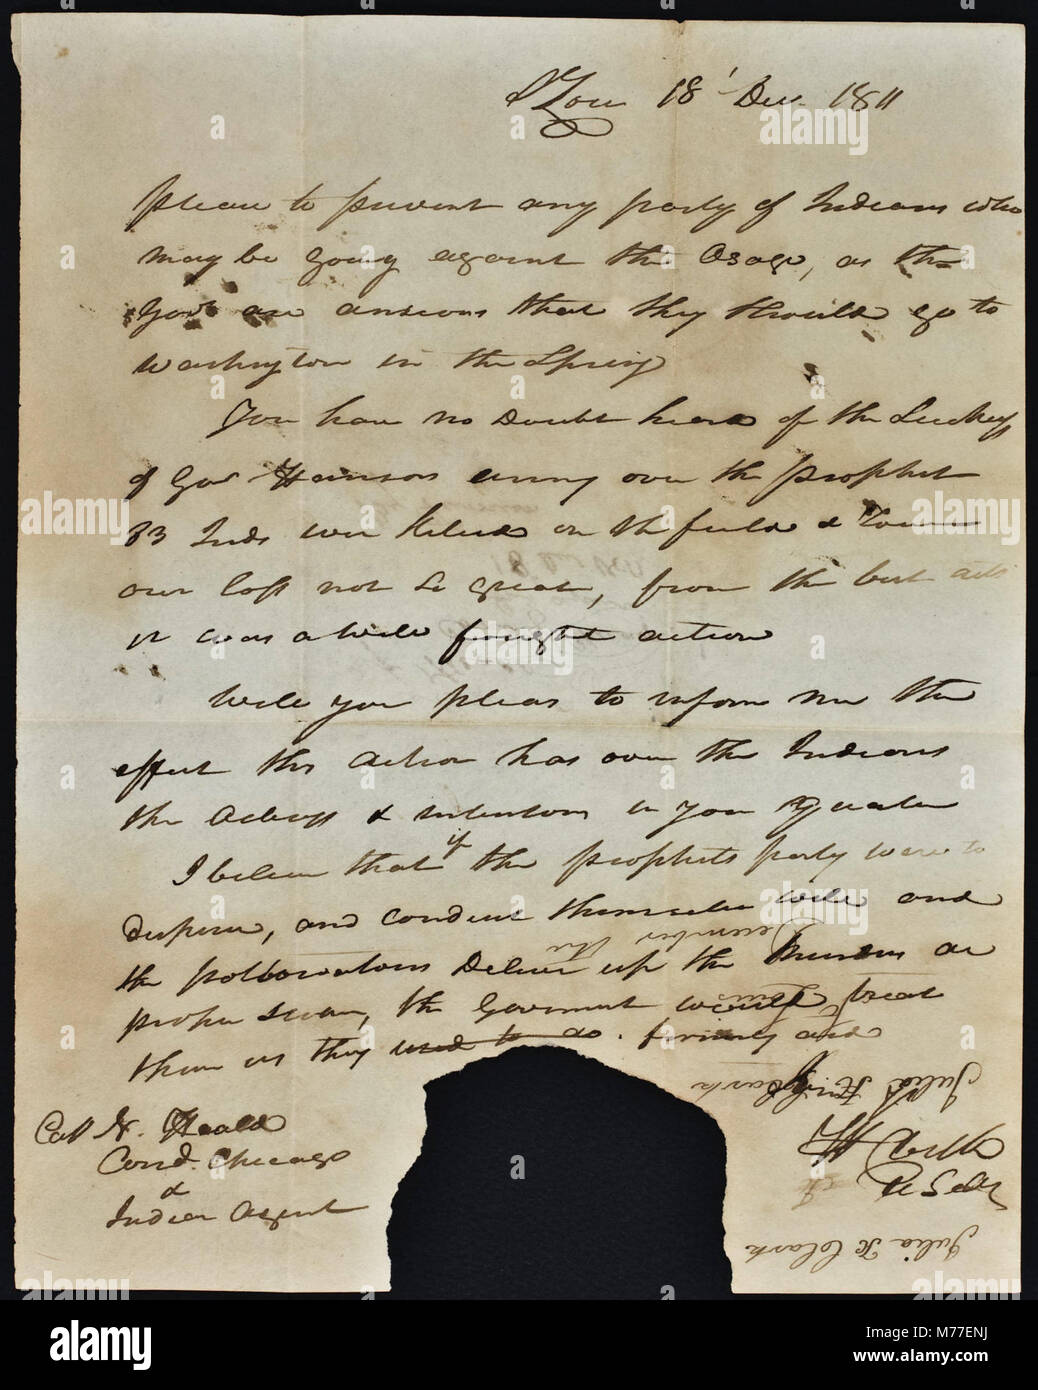 St Lou 18' Dec. 1811
please to prevent any party of Indians who
may be going against the Osage, as the
Govt are anxious that they should go to
Washington in the Spring
You have no doubt heard of the Success
of Gov Harrisons army over the prophet
33 Inds were killed on the field &
our loss not so great, from the best acts
it was a well fought action
Will you pleas to inform me the
effect this action has over the Indians
the & intentions in your quater
I beleve that if the prophets party were to
disperse, and conduct themselves well and
the deliver up the as
proper, the Goverment would treat
them as they used to do. firmly and
Capt N. Heald
Comd. Chicago
&
Indian Agent
December the
Julia
Julia K Clark
alamy
alamy stock photo
M77ENJ
www.alamy.com